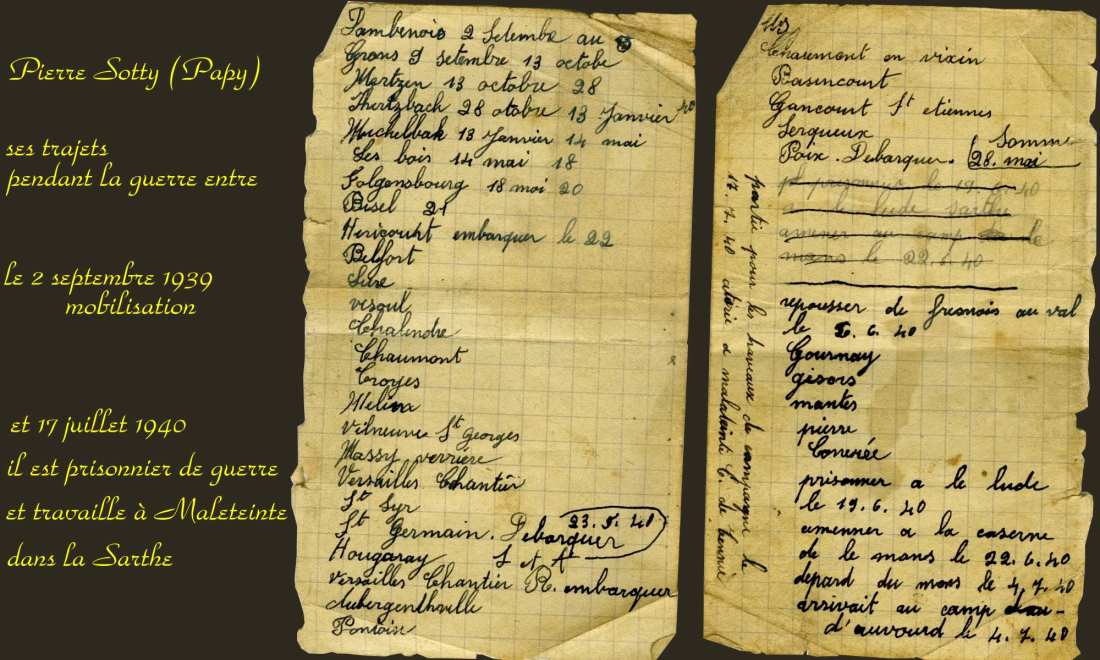 Pierre Sotty (Papy)
ses trajets
pendant la guerre entre
le 2 septembre 1939
mobilisation
et 17 juillet 1940
il est prisonnier de guerre
et travaille à Maleteinte
dans la Sarthe
Pambenois 2 Setembre au
Grons 9 setembre 13 octobe
Mertzen 13 octobre 28
Hertzbach 28 otobre 13 Janvier 40
Muchelbak 13 Janvier 14 mai
Les bois 14 mai 18
Folgensbourg 18 mai 20
Bisel 21
Hericourt embarquer le 22
Belfort
Lure
vesoul
Chalendre
Chaumont
Troyes
Melun
Vilneuve St Georges
Massy verriere
Versailles Chantier
St Syr
St Germain. Debarquer 23. 5. 40
Hougaray S et
Versailles Chantier R. embarquer
Aubergenthville
Pontoise
Chaumont en vixin
Basincourt
Gancourt St etiennes
Serqueux
Poix. Debarquer. Somme 28. mai
prizonnier le 19. 6. 40
a le lude sarthe
amener au camp le
mans le 22. 6. 40
repousser de fresnois au val
le 6. 6. 40
Gournay
gisors
mantes
pierre
prisonner a le lude
le 19. 6. 40
amenner a la caserne
de le mans le 22. 6. 40
depard du mans le 4. 7. 40
arrivait au camp
d'auvourd le 4. 7. 40
partie pour les travaux de campagne le
17. 7. 40 a malatinte C. de